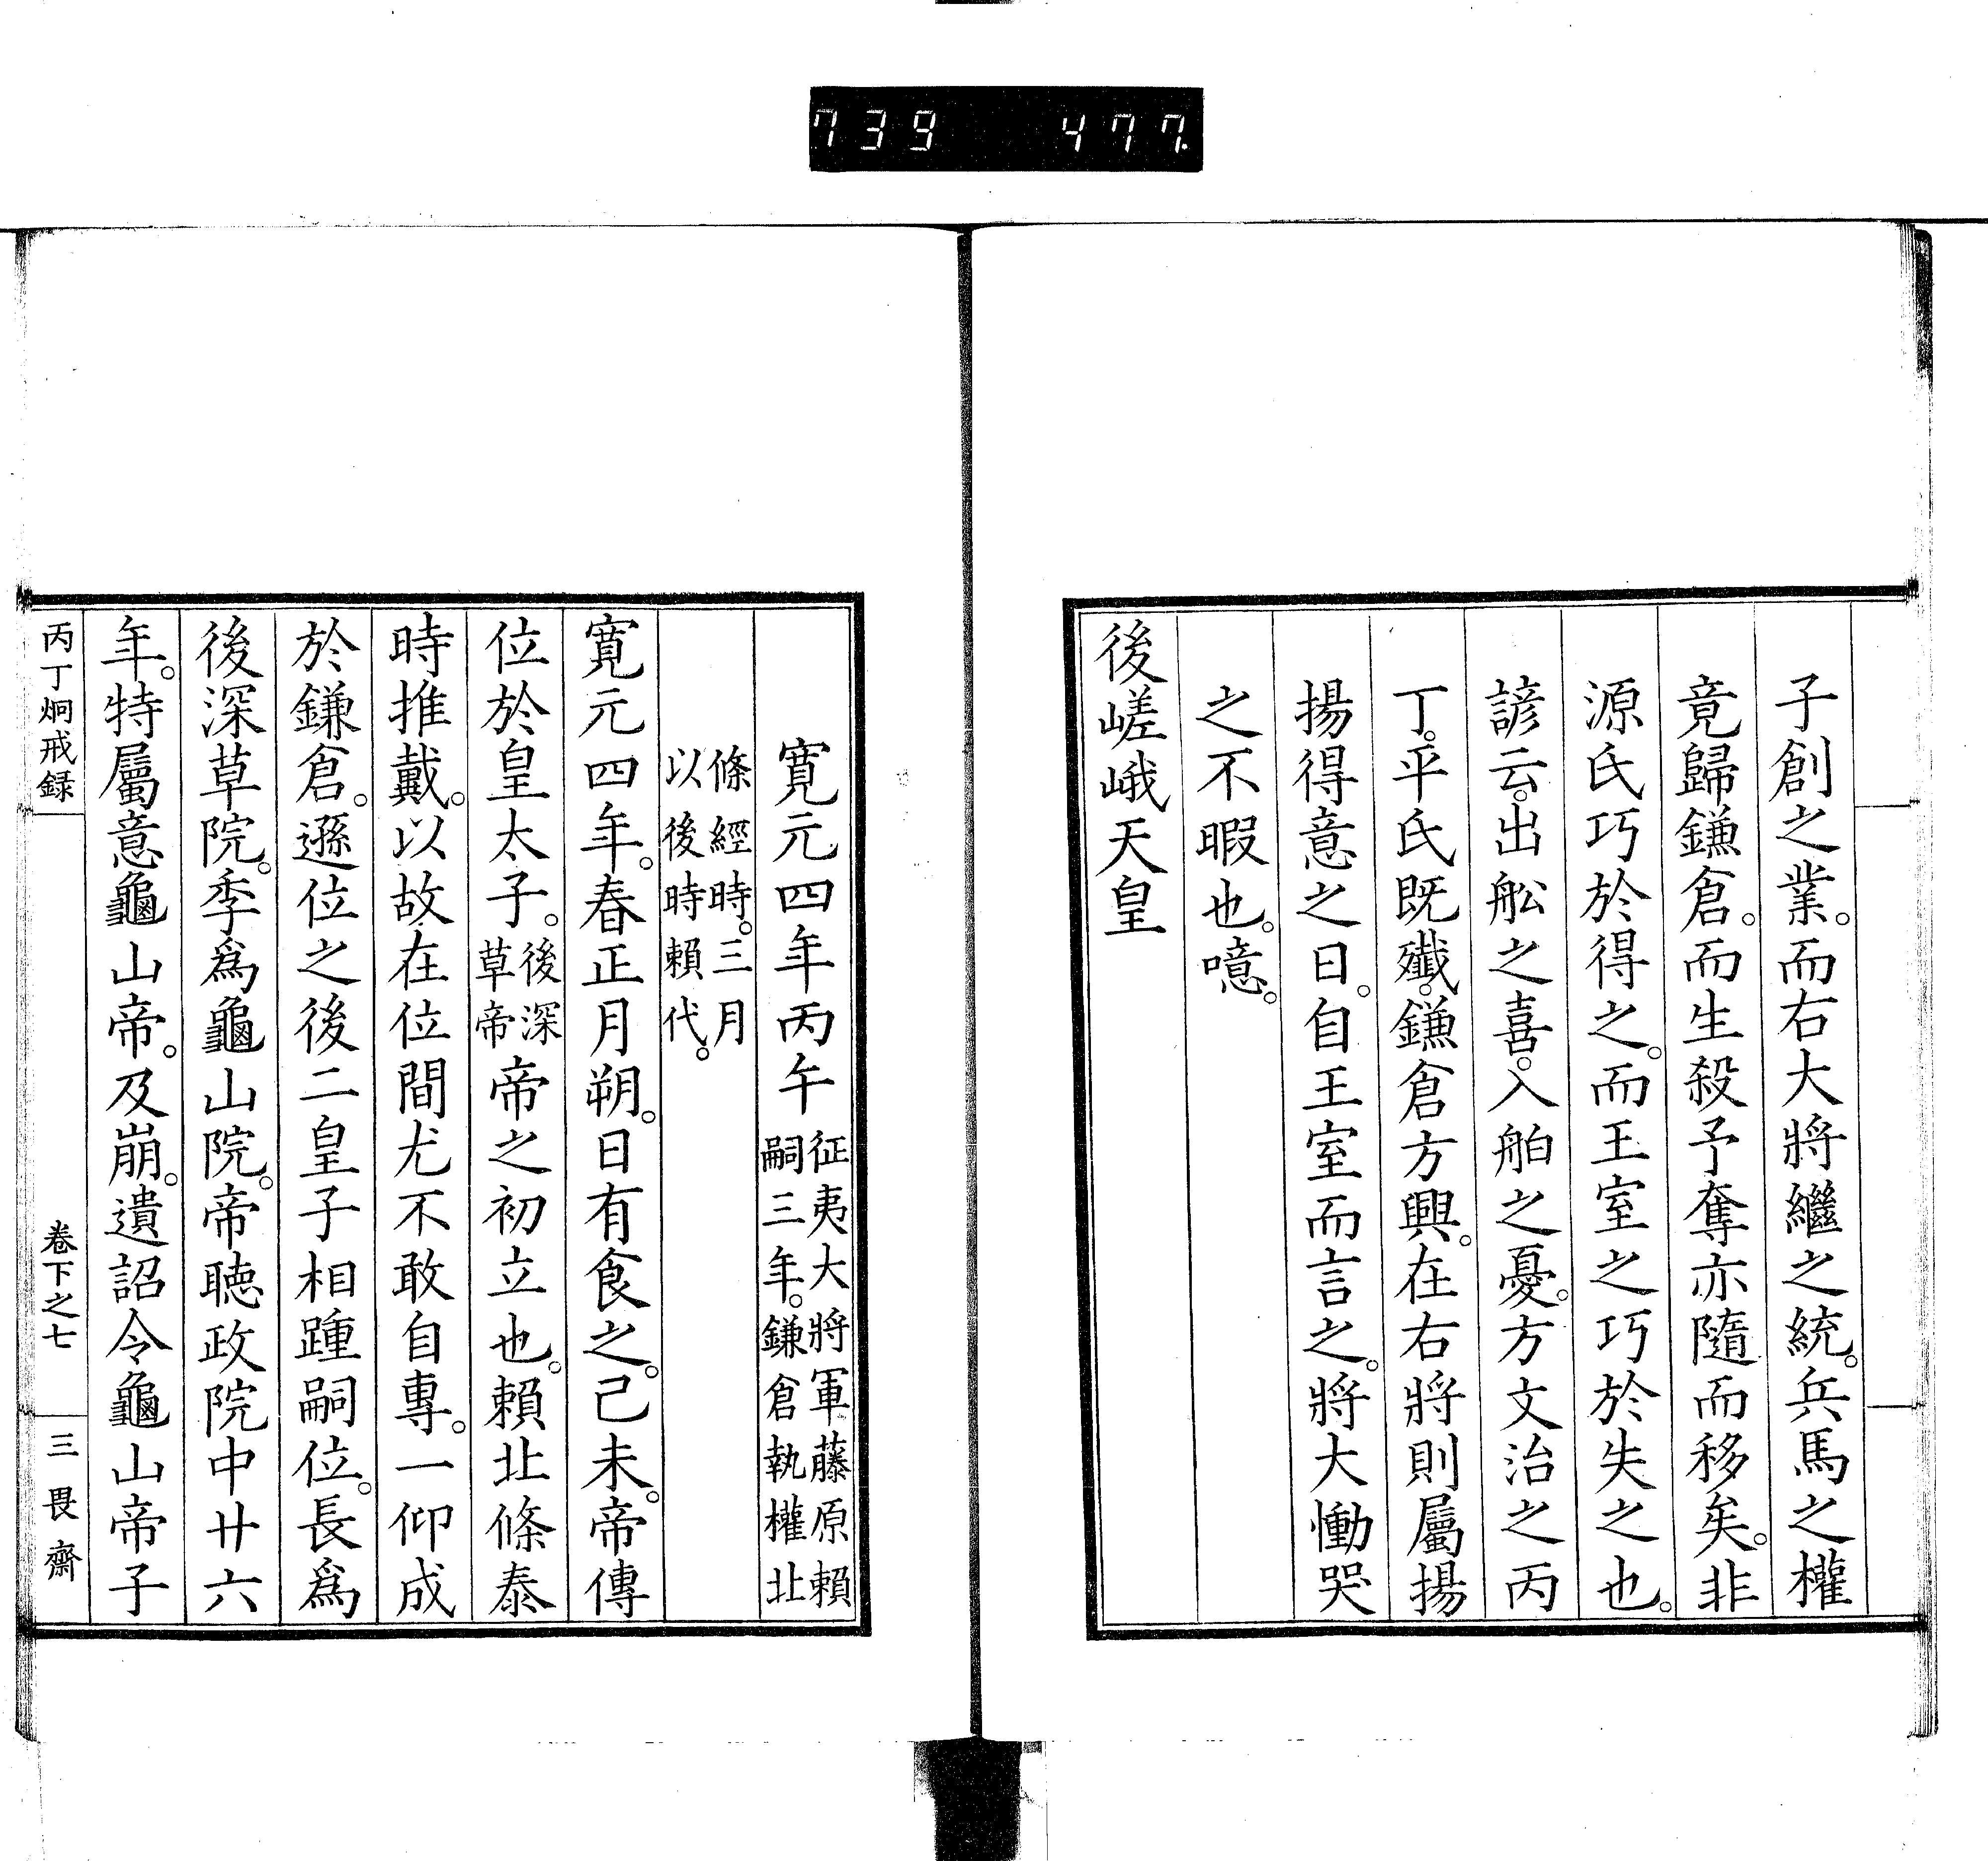 739 477.
子創之業。而右大將繼之統。兵馬之權
竟歸鎌倉。而生殺予奪亦隨而移矣。非
源氏巧於得之。而王室之巧於失之也。
諺云。出舩之喜。入舶之憂。方文治之丙
丁。平氏既殲。鎌倉方興。在右將則屬揚
揚得意之日。自王室而言之。將大慟哭
之不暇也。噫。
後嵯峨天皇
寬元四年丙午征夷大將軍藤原賴
嗣三年。鎌倉執權北
條經時。三月
以後時賴代。
寬元四年。春正月朔。日有食之。己未。帝傳
位於皇太子。後深
草帝帝之初立也。賴北條泰
時推戴。以故在位間尤不敢自專。一仰成
於鎌倉。遜位之後二皇子相踵嗣位。長爲
後深草院。季爲龜山院。帝聽政院中廿六
年。特屬意龜山帝。及崩。遺詔令龜山帝子
丙丁炯戒録 卷下之七 三畏齋